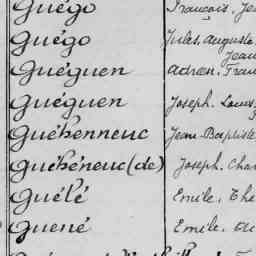 Guégo François, Je
Guégo Jules, Auguste
Jean
Guéguen Adrien, Fran
Guéguen Joseph, Louis
Guéhenneuc Jean Baptiste
Guéhéneuc (de) Joseph, Char
Guélé Emile, The
Guené Emile,